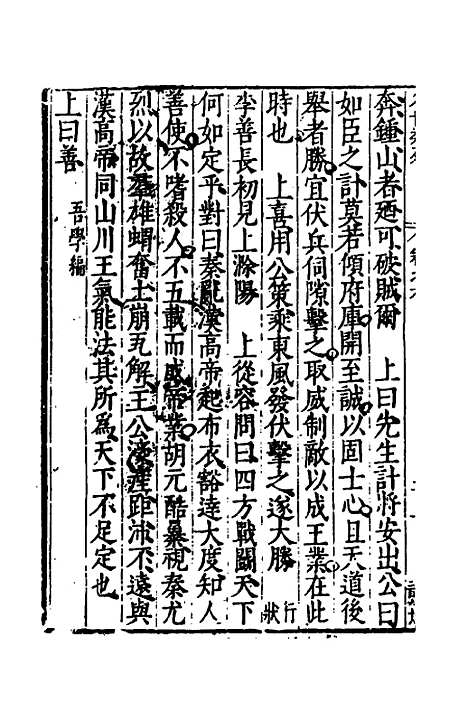 奔鍾山者廼可破賊爾　上曰先生計將安出公曰
如臣之計莫若傾府庫開至誠以固士心且天道後
舉者勝宜伏兵伺隙擊之取威制敵以成王業在此
時也　上喜用公策乘東風發伏擊之遂大勝　行狀
李善長初見上滁陽　上從容問曰四方戰鬪天下
何如定乎對曰秦亂漢高帝起布衣豁達大度知人
善使不嗜殺人不五載而成帝業胡元酷暴視秦尤
烈以故羣雄蝟奮土崩瓦解王公濠產距沛不遠與
漢高帝同山川王氣能法其所爲天下不足定也
上曰善　吾學編